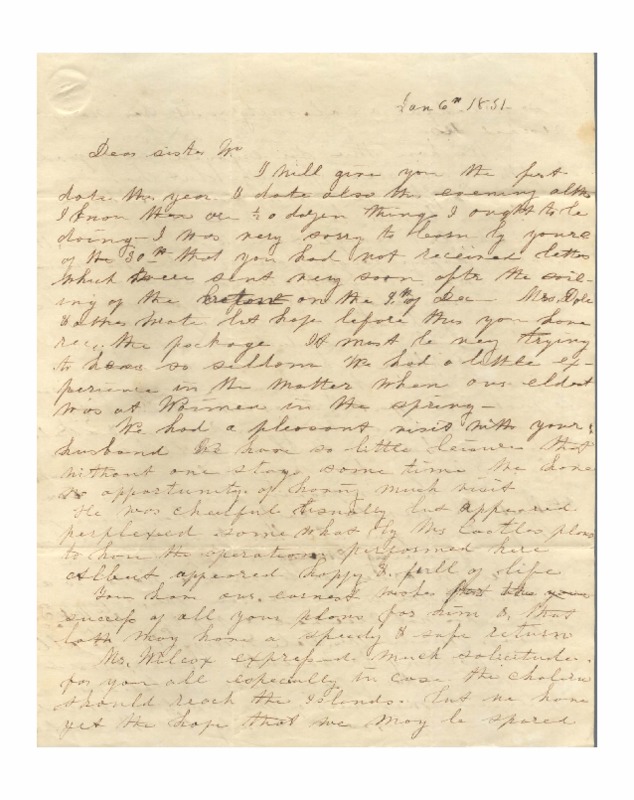 Jan 6th 1851
Dear sister W
I will give you the first
date this year & date also this evening altho
I know there are ½ a dozen things I ought to be
doing - I was very sorry to learn by yours
of the 30th that you had not received letters
which were sent very soon after the sail-
ing of the on the 9th of Dec - Mrs. Dole
& other wrote but hope before this you have
rec. the package It must be very trying
to hear so seldom We had a little ex-
perience in the matter when our eldest
was at Waimea in the spring -
We had a pleasant visit with your
husband We have so little leisure that
without one stays some time we have
no opportunity of having much visit
He was cheerful usually but appeared
perplexed somewhat by Mr Castles plans
to have the operation performed here
Albert appeared happy & full of life
You have our earnest wishes for the
success of all your plans for him & that
both may have a speedy & safe return
Mr. Wilcox expressed much solicitude
for you all especially in case the cholera
should reach the Islands. but we have
yet the hope that we may be spared